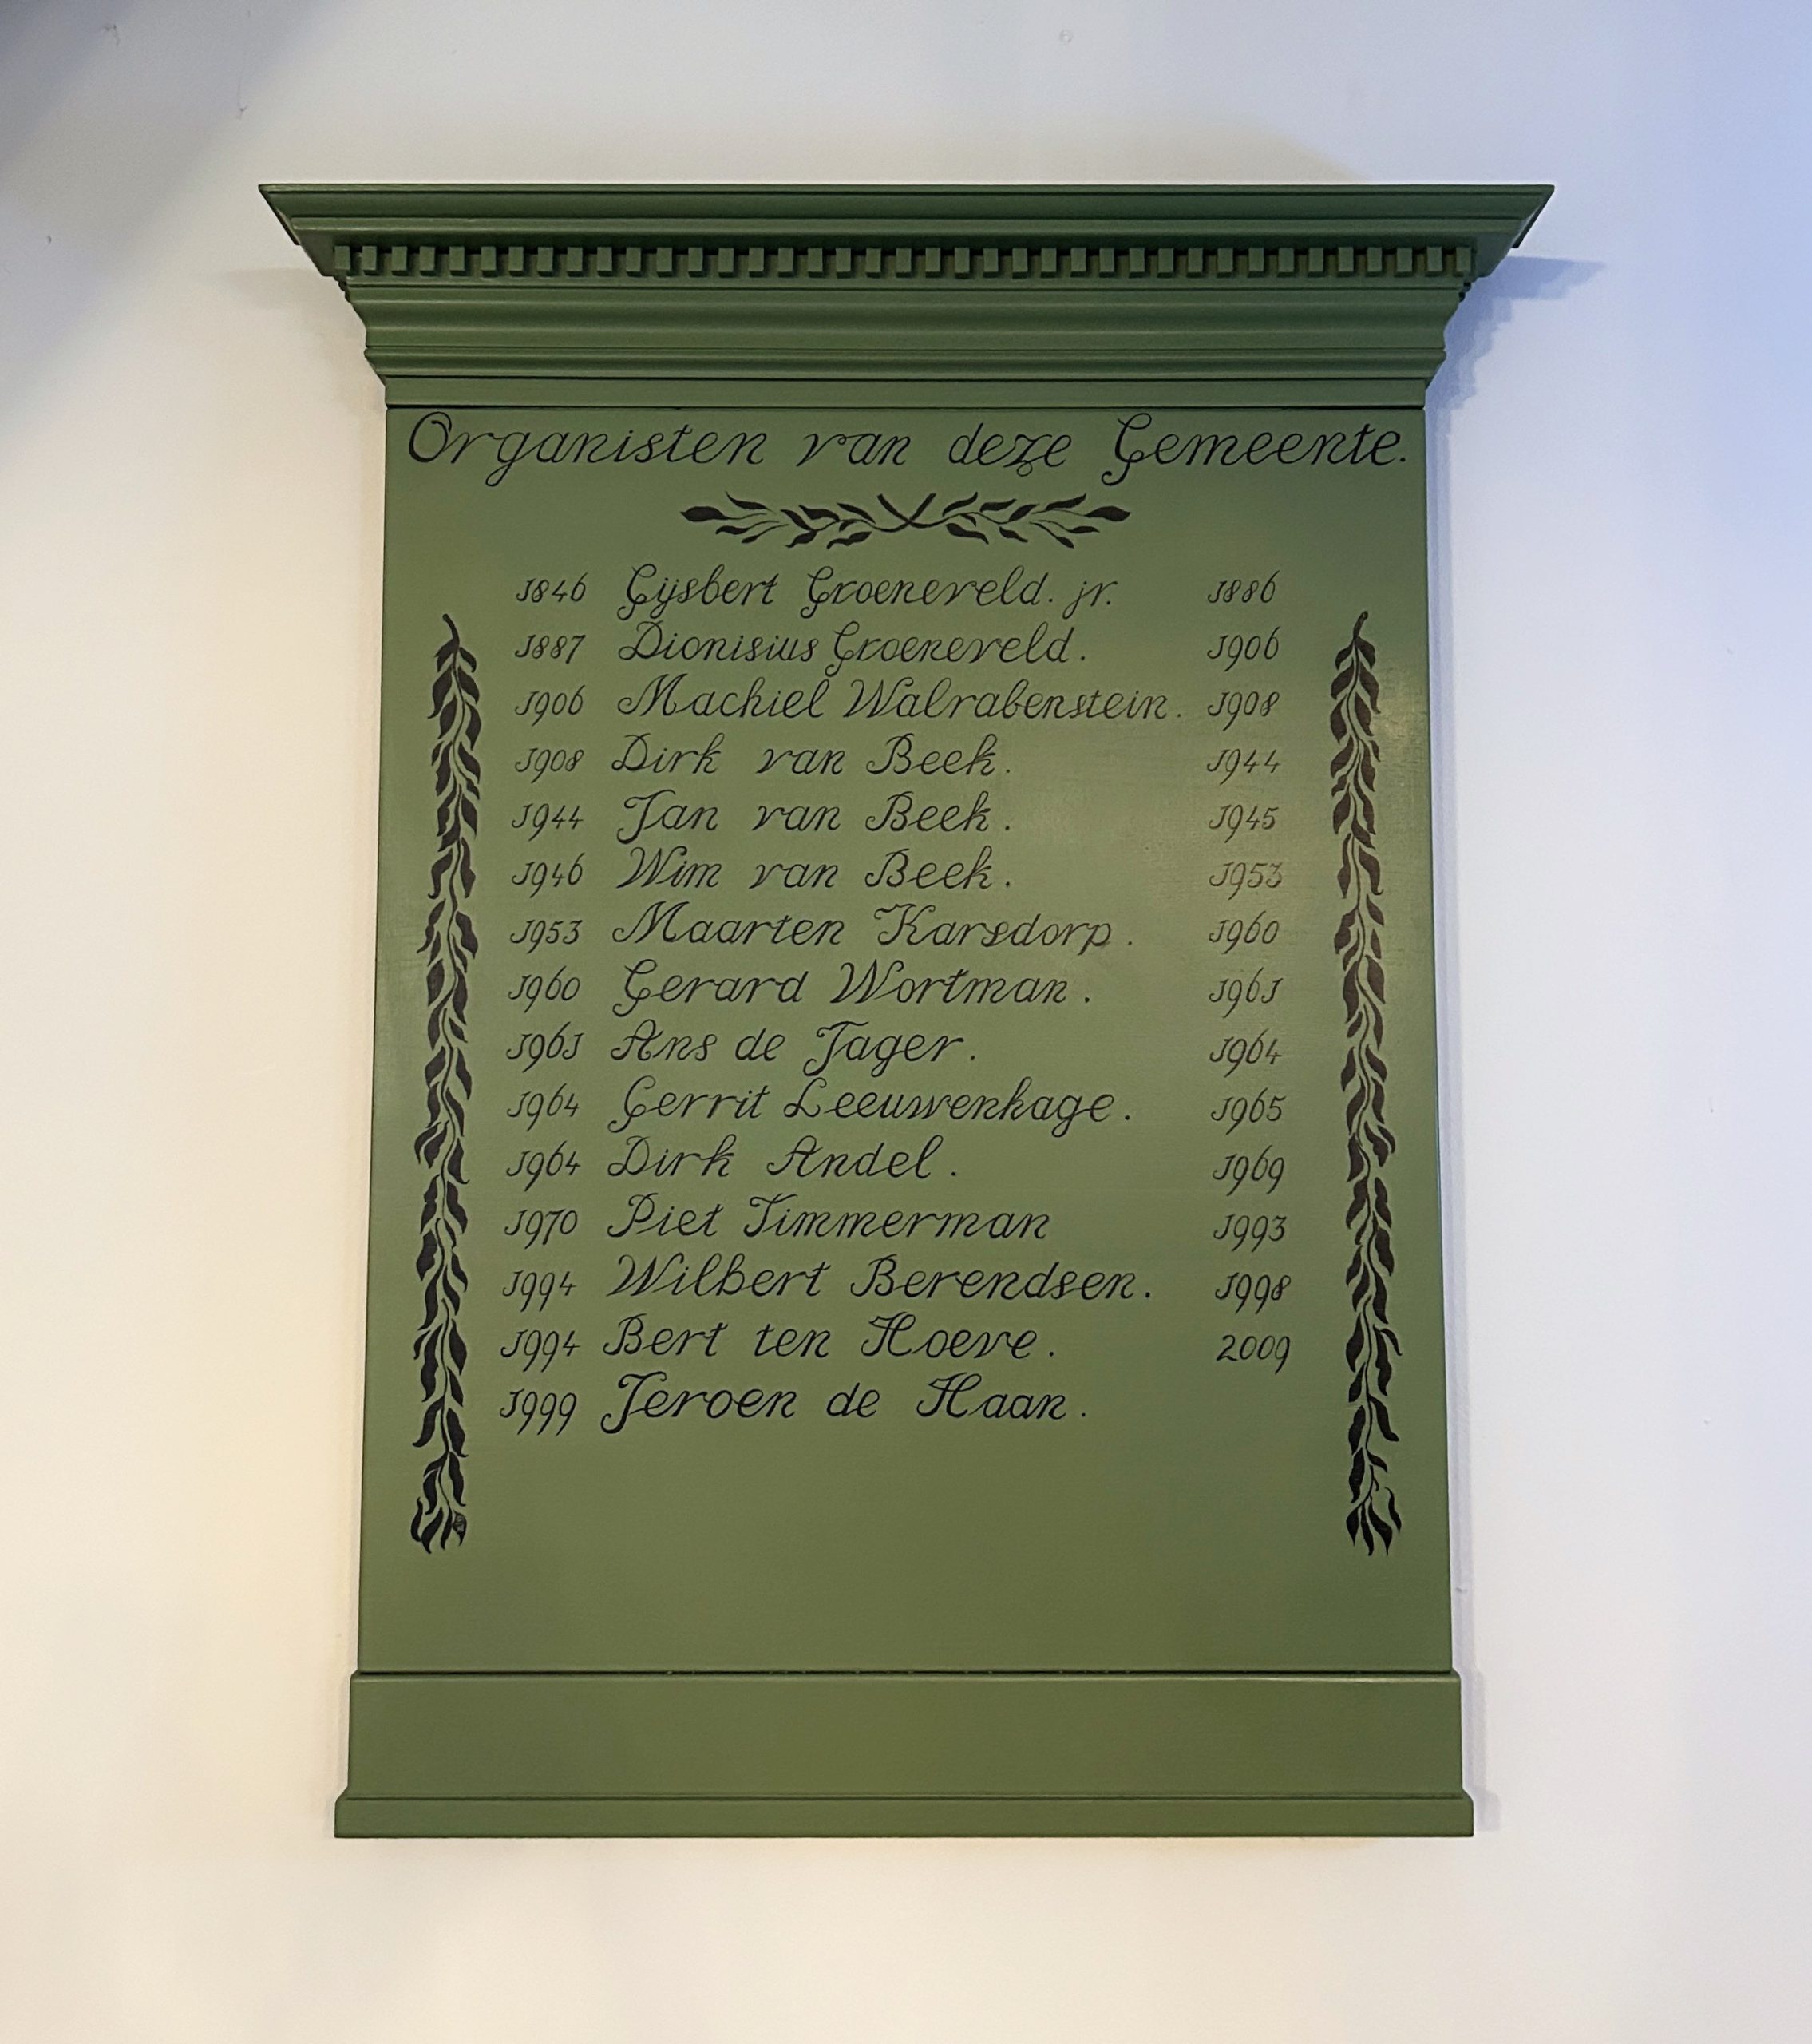 Organisten van deze Gemeente.
1846 Gijsbert Groeneveld. jr. 1886
1887 Dionisius Groeneveld. 1906
1906 Machiel Walrabenstein. 1908
1908 Dirk van Beek. 1944
1944 Jan van Beek. 1945
1946 Wim van Beek. 1953
1953 Maarten Karsdorp. 1960
1960 Gerard Wortman. 1961
1961 Ans de Jager. 1964
1964 Gerrit Leeuwenhage. 1965
1964 Dirk Andel. 1969
1970 Piet Timmerman 1993
1994 Wilbert Berendsen. 1998
1994 Bert ten Hoeve. 2009
1999 Jeroen de Haan.